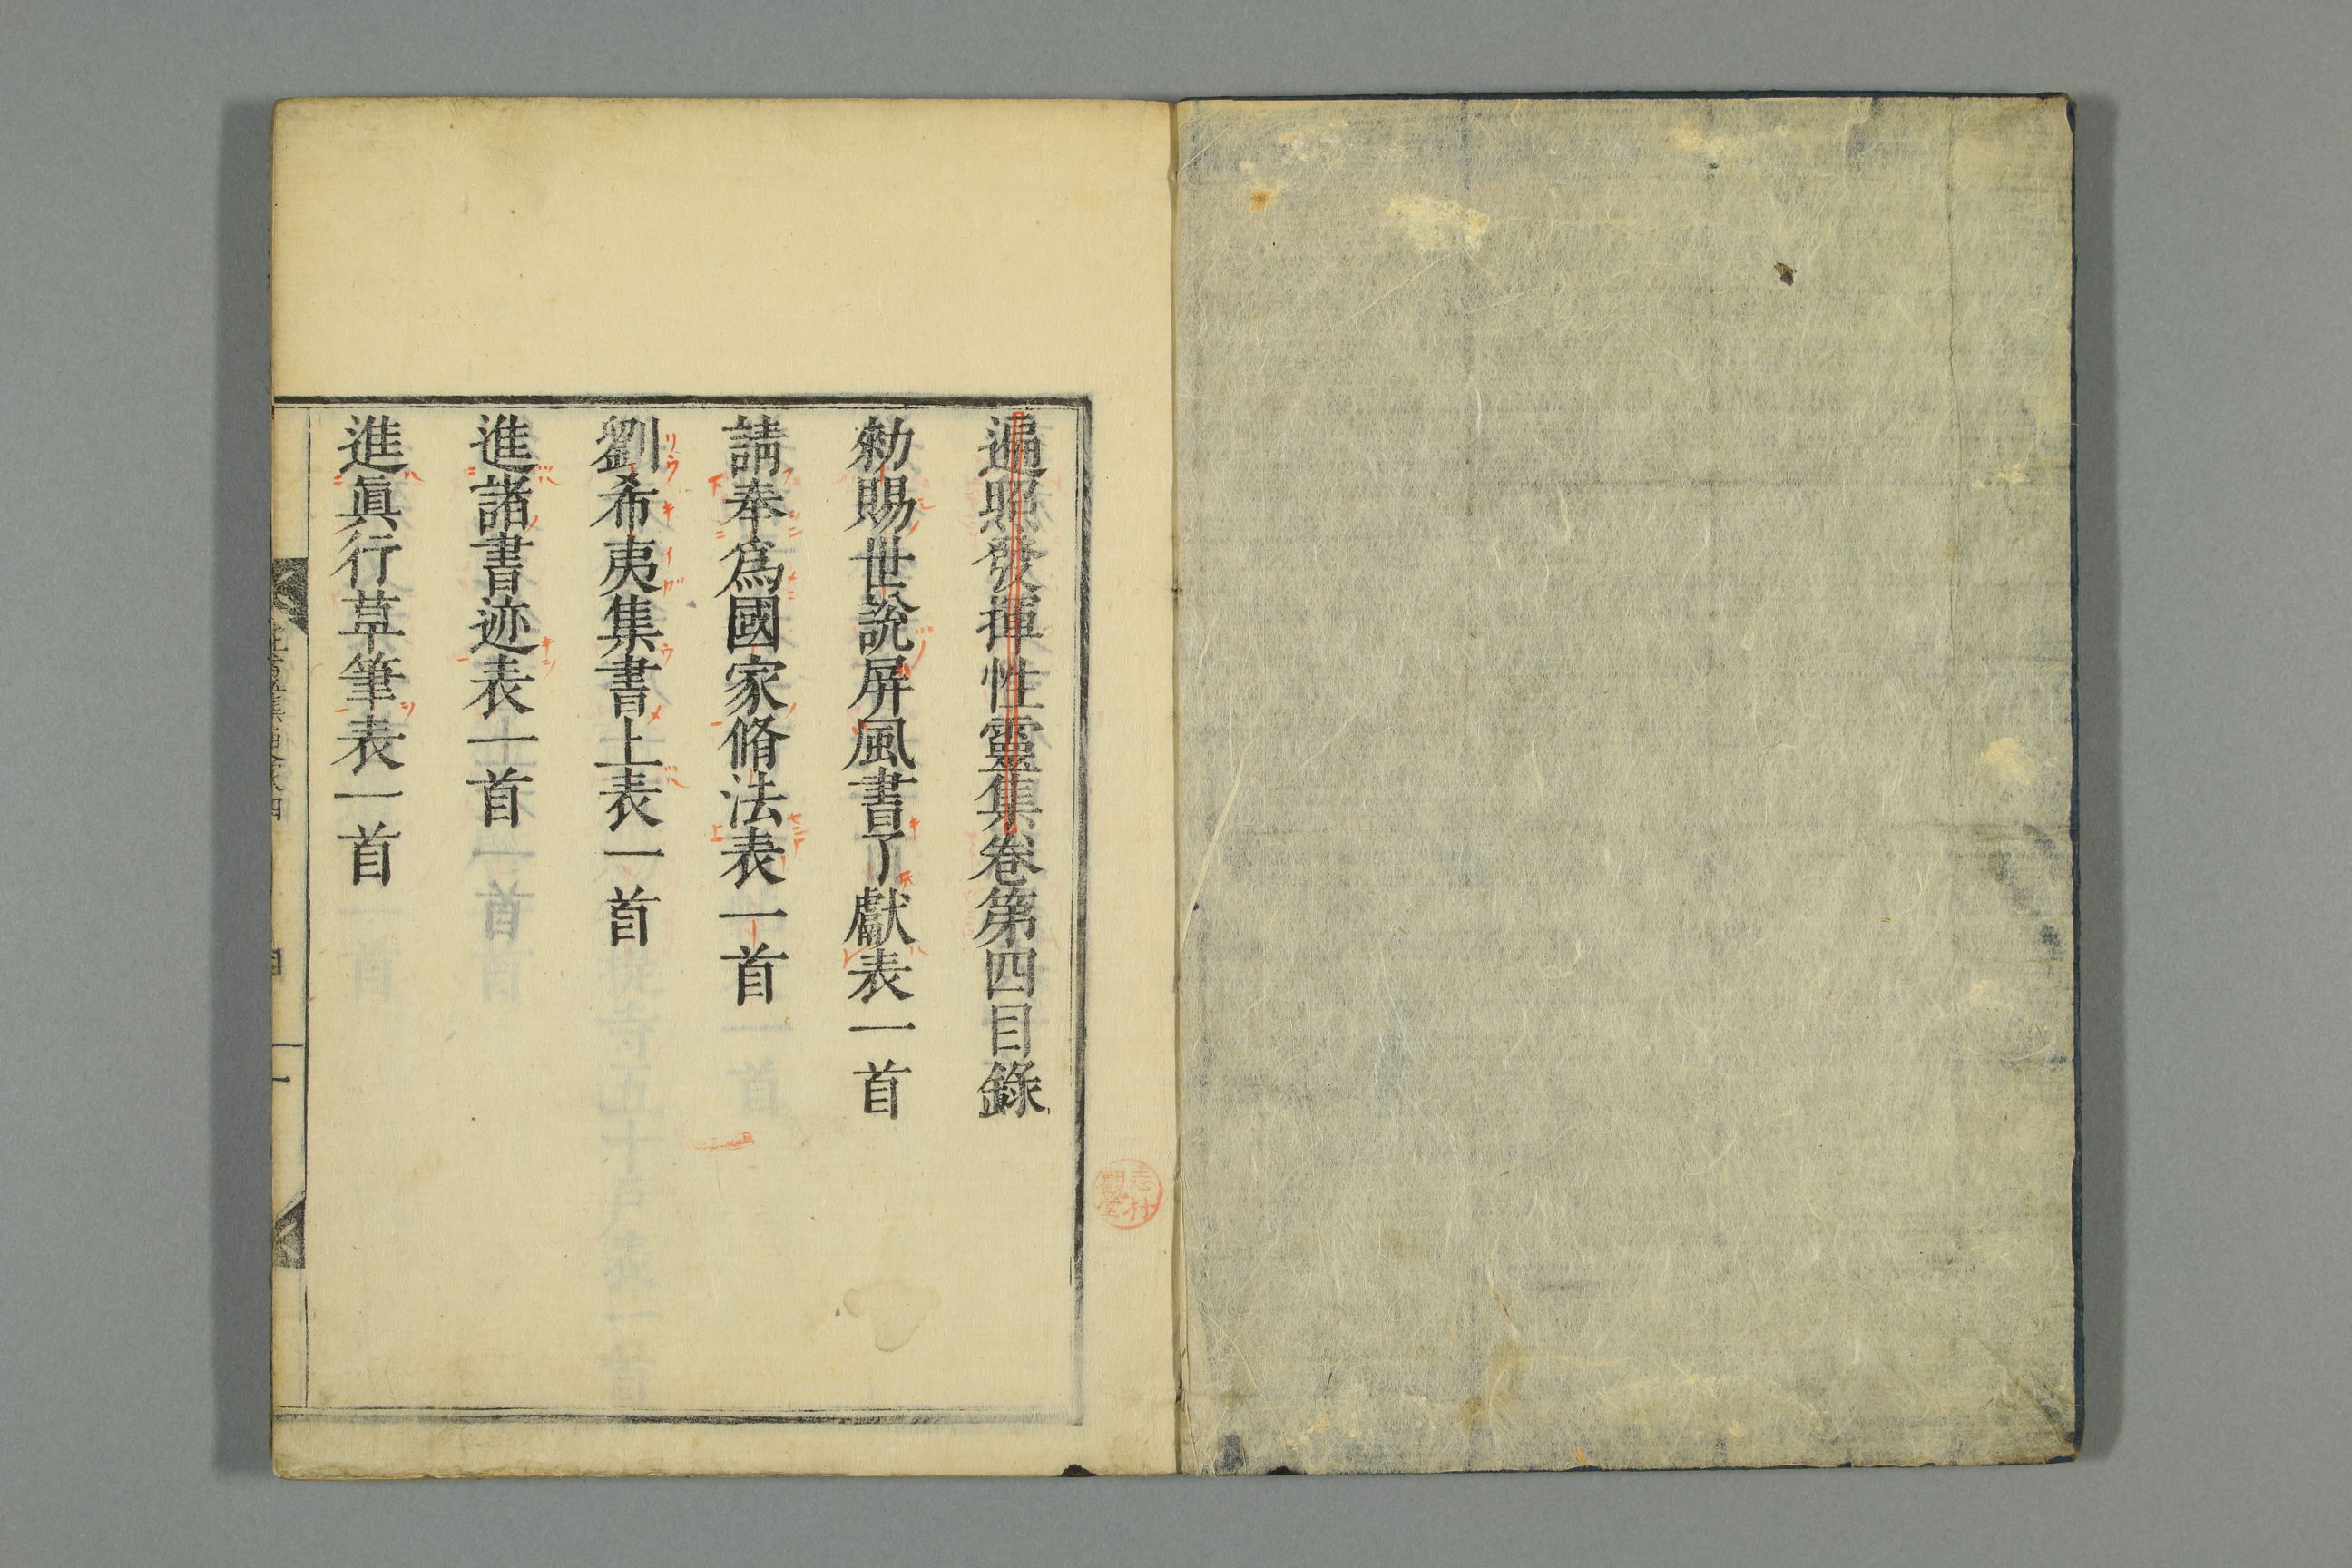 遍照發揮性靈集卷第四目錄
勑賜世說屏風書了獻表一首
請奉爲國家脩法表一首
劉希夷集書上表一首
進諸書迹表一首
進眞行草筆表一首